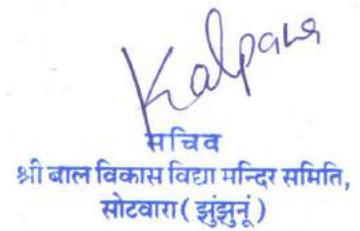 Kalpana
सचिव
श्री बाल विकास विद्या मन्दिर समिति,
सोटवारा ( झुंझुनूं )